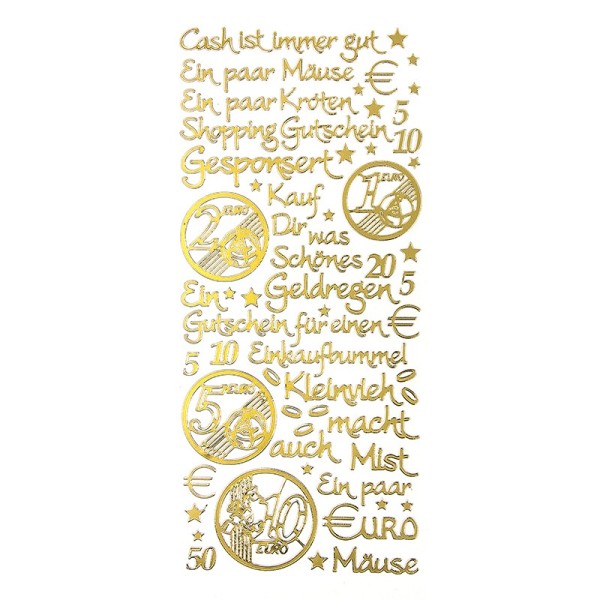 Cash ist immer gut
Ein paar Mäuse €
Ein paar Kröten 5
Shopping Gutschein 10
Gesponsert
1 EURO
Kauf
2 EURO
Dir was
Schönes 20 5
Ein Geldregen
Gutschein für einen €
5 10 Einkaufbummel
Kleinvieh
5 EURO
macht
auch Mist
€
Ein paar
10 EURO
EURO
50
Mäuse